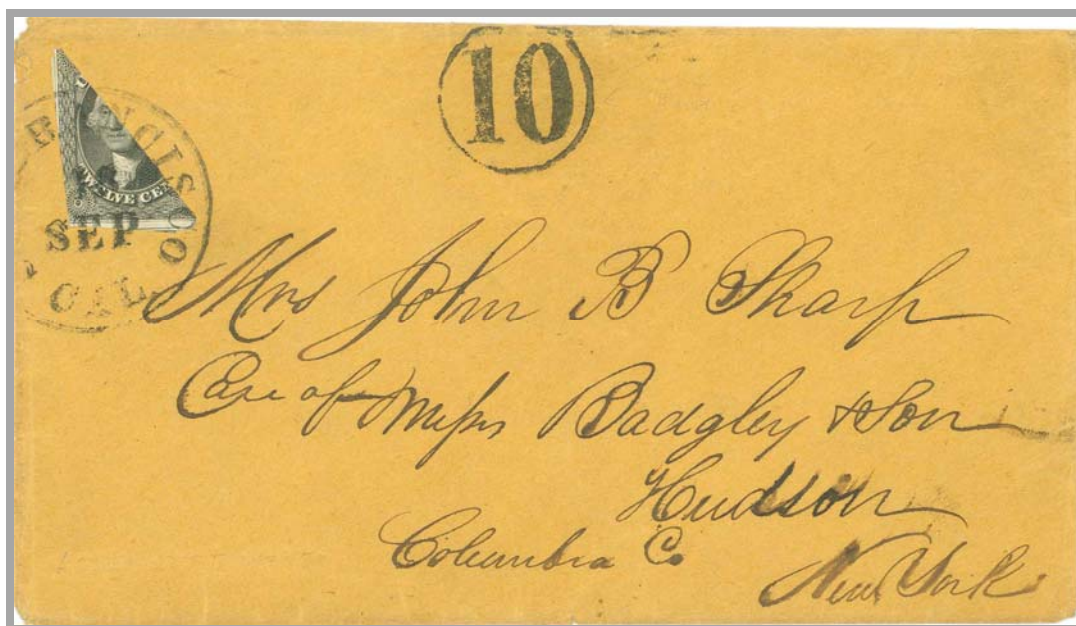 10
RANCISCO
TWELVE CE
SEP
CAL
Mrs John B Sharp
Care of Messrs Badgley & Son
Hudson
Columbia Co
New York